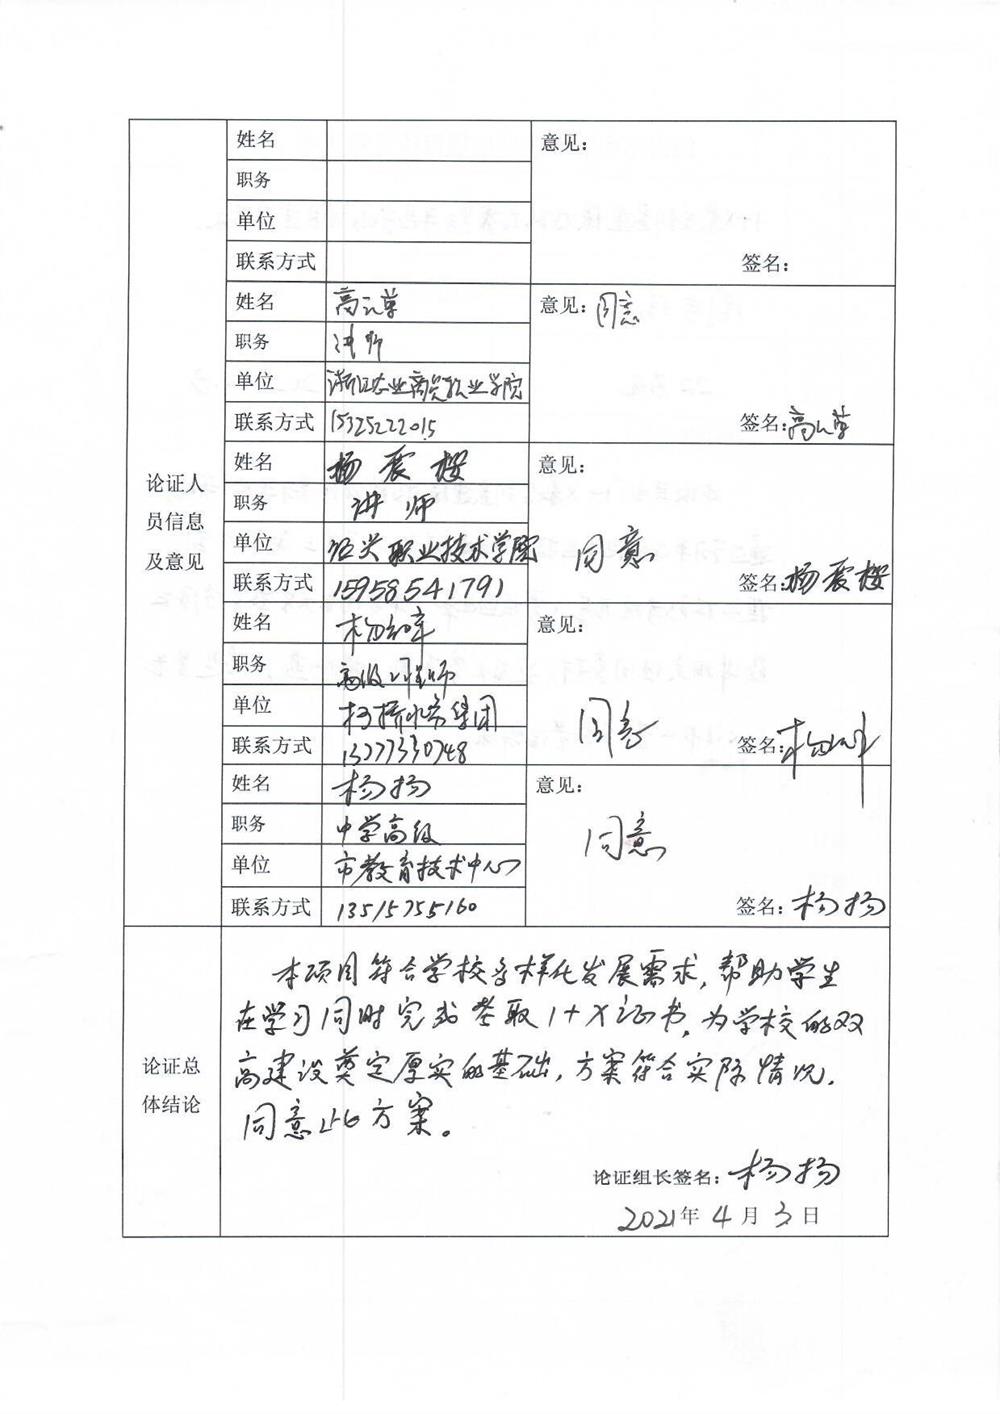 姓名
意见：
职务
单位
联系方式
签名：
姓名 高云萍
意见：同意
职务 讲师
单位 浙江农业商贸职业学院
联系方式 15325222015
签名：高云萍
论证人
员信息
及意见
姓名 杨震樱
意见：
职务 讲师
单位 绍兴职业技术学院
同意
联系方式 15958541791
签名：杨震樱
姓名
意见：
职务 高级工程师
单位 柯桥水务集团
同意
联系方式 13777330748
签名：
姓名 杨扬
意见：
职务 中学高级
同意
单位 市教育技术中心
联系方式 13515755160
签名：杨扬
论证总
体结论
本项目符合学校多样化发展需求，帮助学生
在学习同时完成考取1+X证书，为学校的双
高建设奠定厚实的基础，方案符合实际情况，
同意此方案。
论证组长签名：杨扬
2021年4月3日